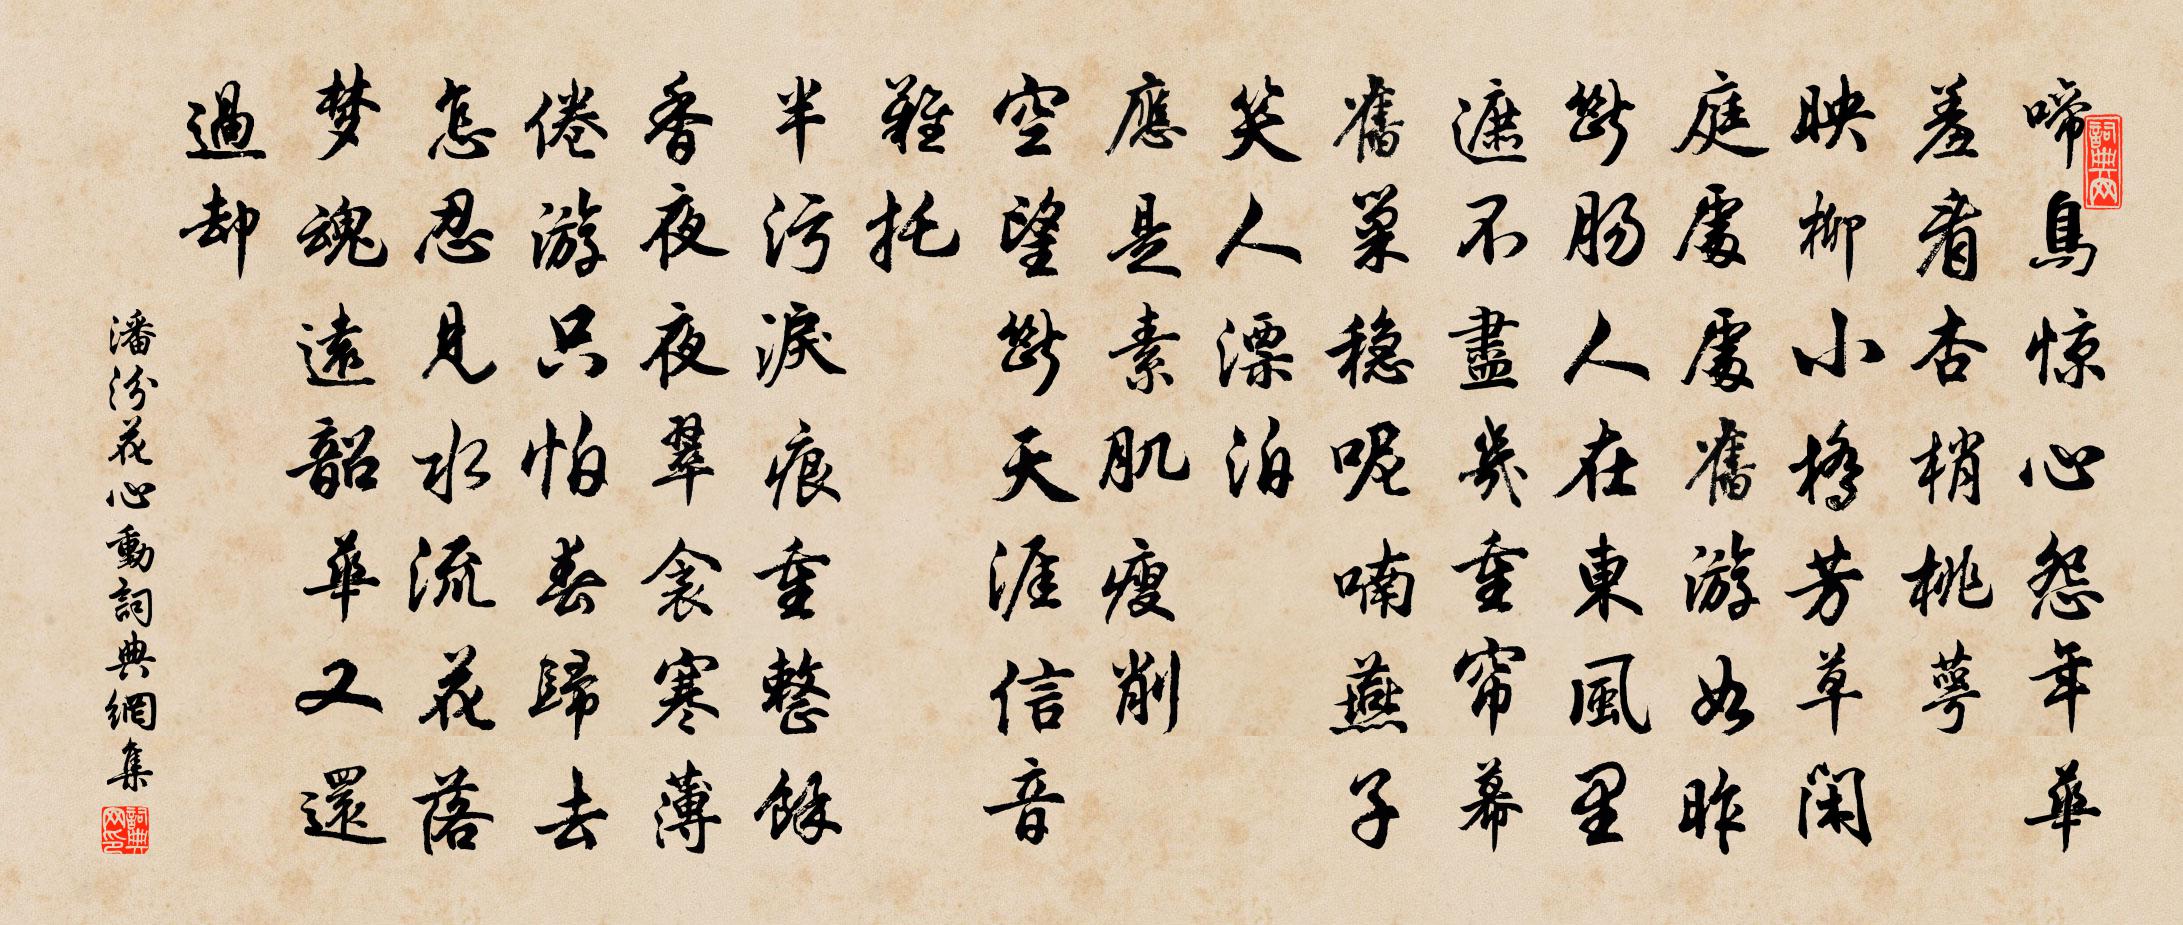 啼鳥惊心怨年華
羞看杏梢桃萼
映柳小橋芳草閑
庭處處舊游如昨
斷肠人在東風里
遮不盡幾重帘幕
舊巢穏呢喃燕子
笑人漂泊
應是素肌瘦削
空望斷天涯信音
難托
半污淚痕重整餘
香夜夜翠衾寒薄
倦游只怕春歸去
怎忍見水流花落
梦魂遠韶華又還
過却
潘汾花心動詞典網集
詞典网
詞典网印